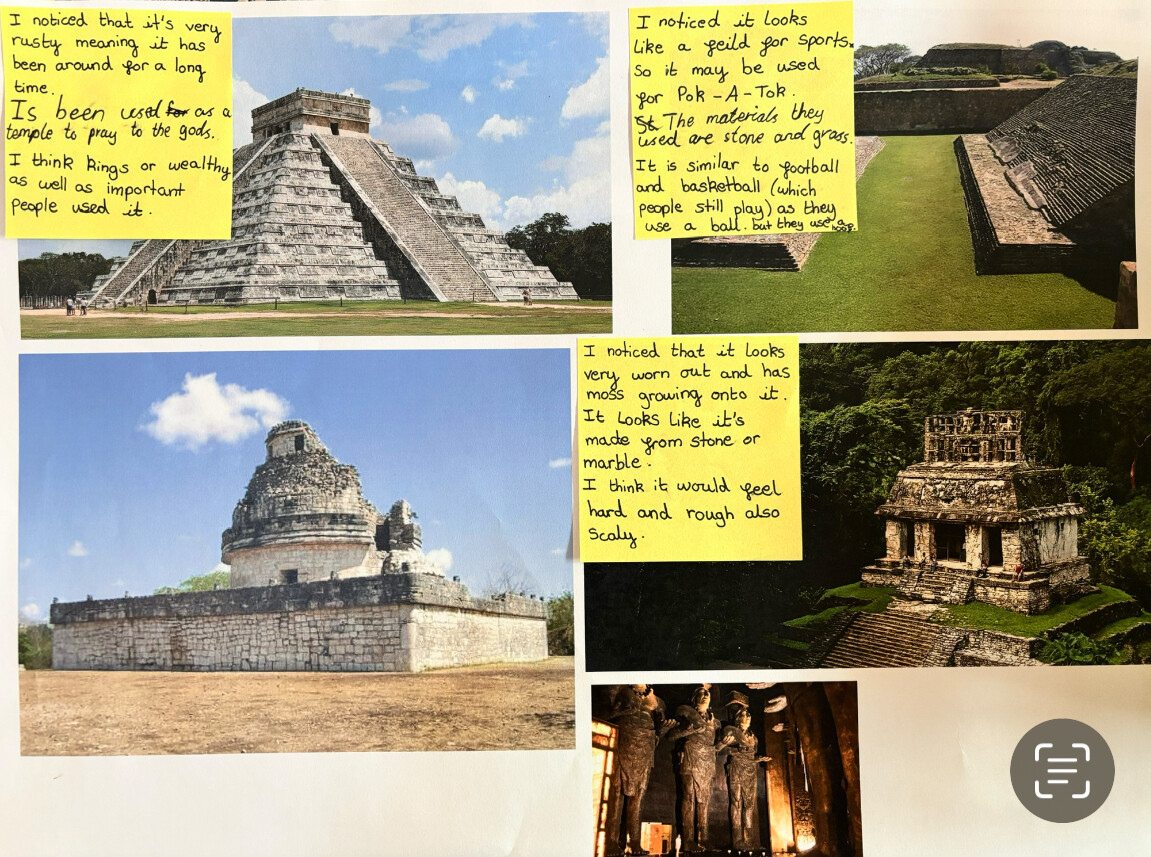 I noticed that it's very
rusty meaning it has
been around for a long
time.
Is been used for as a
temple to pray to the gods.
I think kings or wealthy
as well as important
people used it.
I noticed it looks
like a feild for sports.
So it may be used
for Pok-A-Tok.
St The materials they
used are stone and grass.
It is similar to football
and basketball (which
people still play) as they
use a ball. but they use a
hoop.
I noticed that it looks
very worn out and has
moss growing onto it.
It looks like it's
made from stone or
marble.
I think it would feel
hard and rough also
scaly.